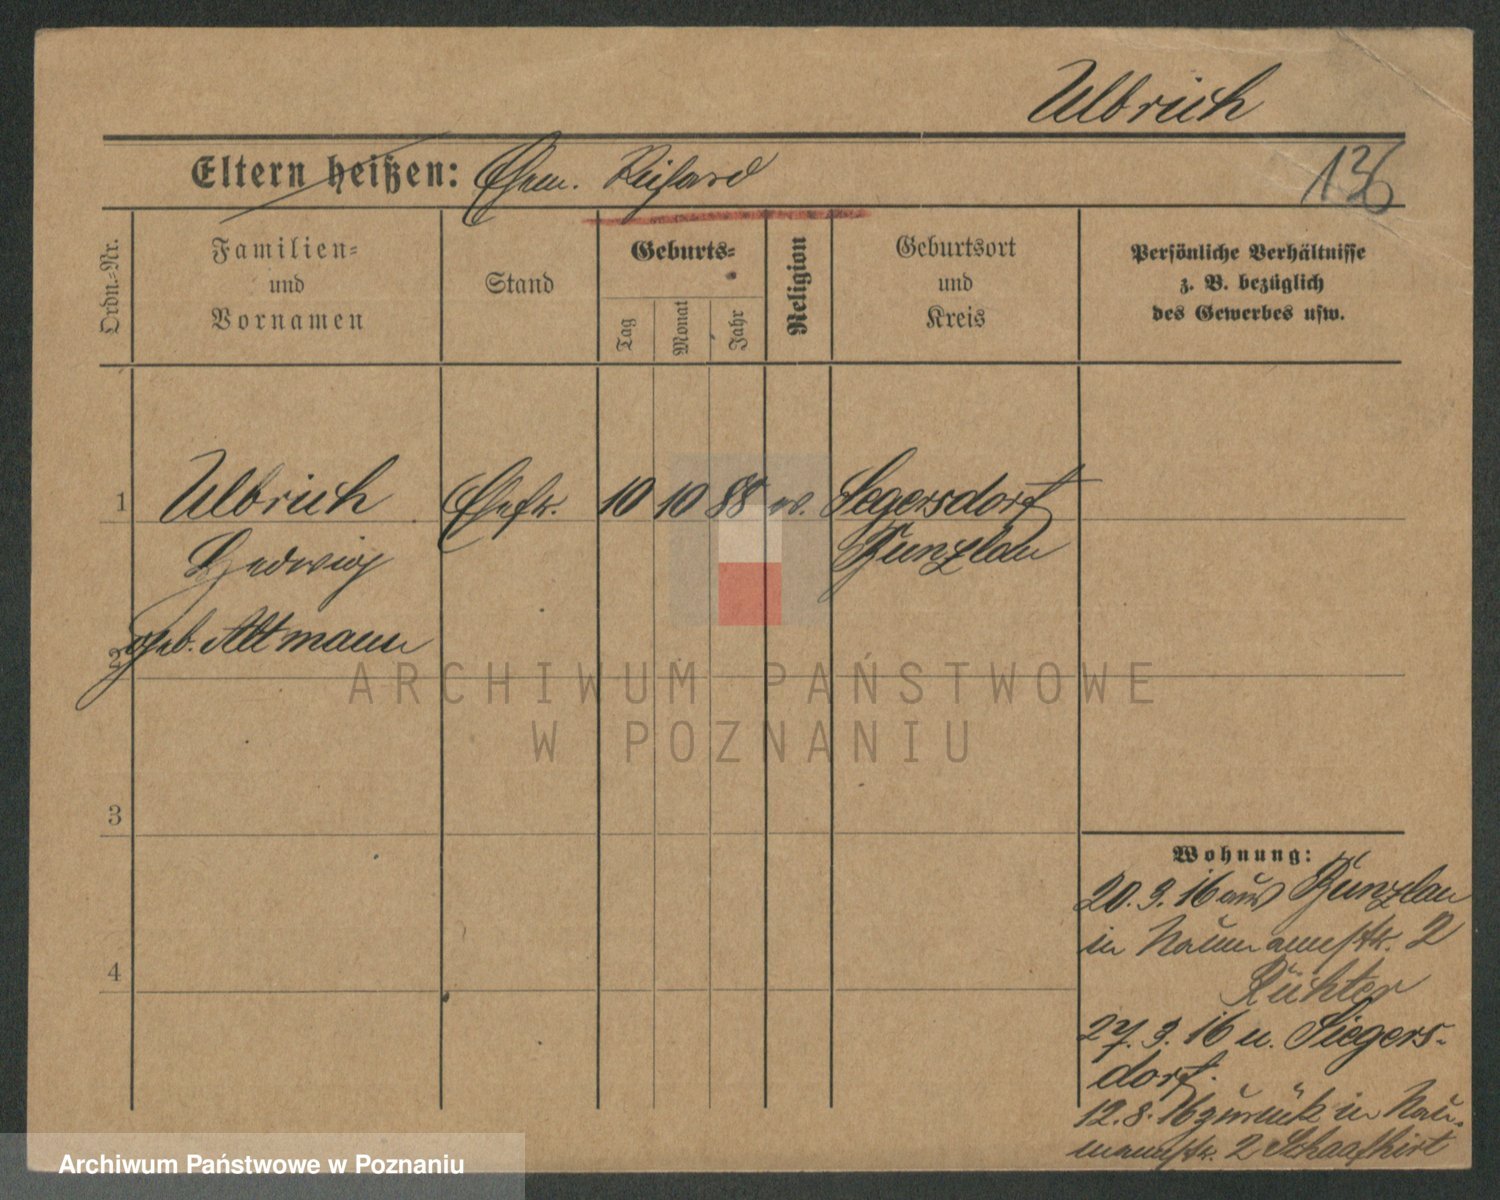 Ulbrich
136
Eltern heißen: Ehem. Richard
Ordn.-Nr.
Familien-
und
Vornamen
Stand
Geburts-
Tag
Monat
Jahr
Religion
Geburtsort
und
Kreis
Persönliche Verhältnisse
z. B. bezüglich
des Gewerbes usw.
1 Ulbrich Ehefr. 10 10 88 ev. Segersdorf
Hedwig Bunzlau
2 geb. Altmann
3
4
Wohnung:
20. 3. 16 aus Bunzlau
in Naumannstr. 2
Richter
27. 3. 16 n. Siegers-
dorf.
12. 8. 16 zurück in Nau-
mannstr. 2 Schaafhirt
ARCHIWUM PAŃSTWOWE
W POZNANIU
Archiwum Państwowe w Poznaniu